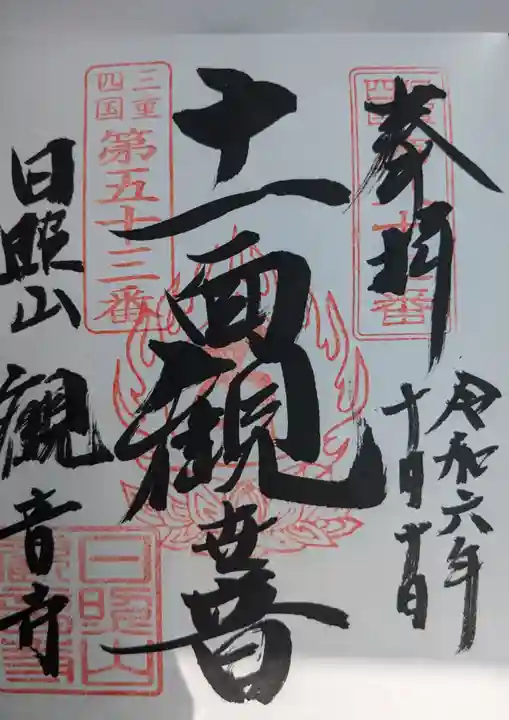 奉拝
令和六年
十月十日
十一面観世音
三重
四国
第五十三番
日照山 観音寺
日照山
観音寺